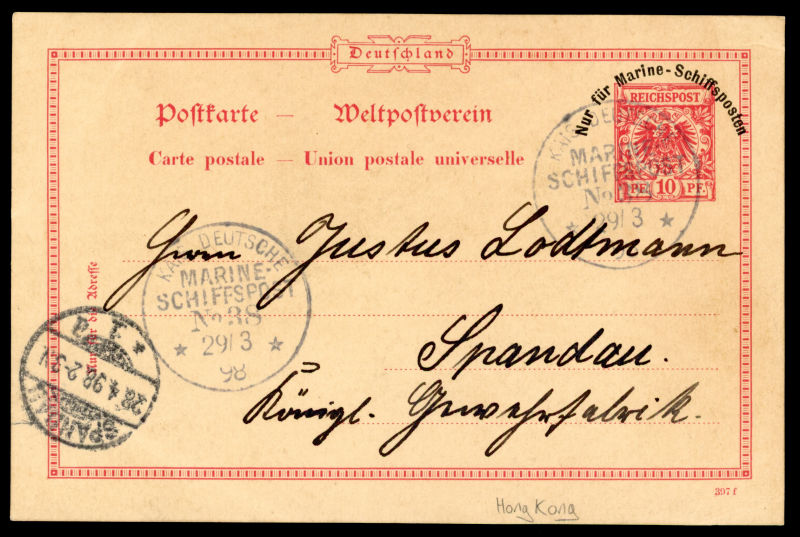 Deutschland
Nur für Marine-Schiffsposten
REICHSPOST
10
PF. PF.
Postkarte — Weltpostverein
Carte postale — Union postale universelle
KAIS. DEUTSCHE
MARINE-
SCHIFFSPOST
No
* 29/3 *
Herrn Justus Lodtmann
KAIS. DEUTSCHE
MARINE-
SCHIFFSPOST
No 38
* 29/3 *
98
Nur für die Adresse
Spandau.
SPANDAU
28.4.98.2-3N
* 1 a
Königl. Gewehrfabrik.
397 f
Hong Kong